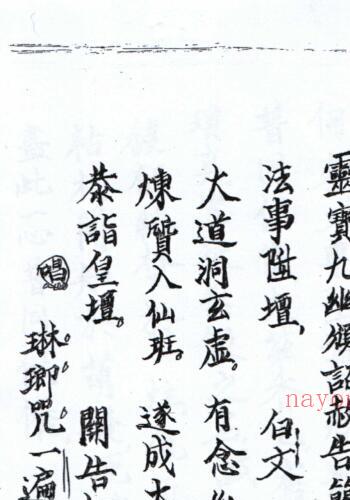 靈寶九幽頒詔赦告
法事陞壇，白文
大道洞玄虛。有念
煉質入仙班。遂成大
恭詣皇壇。開告
唱 琳瑯咒一遍
nayo